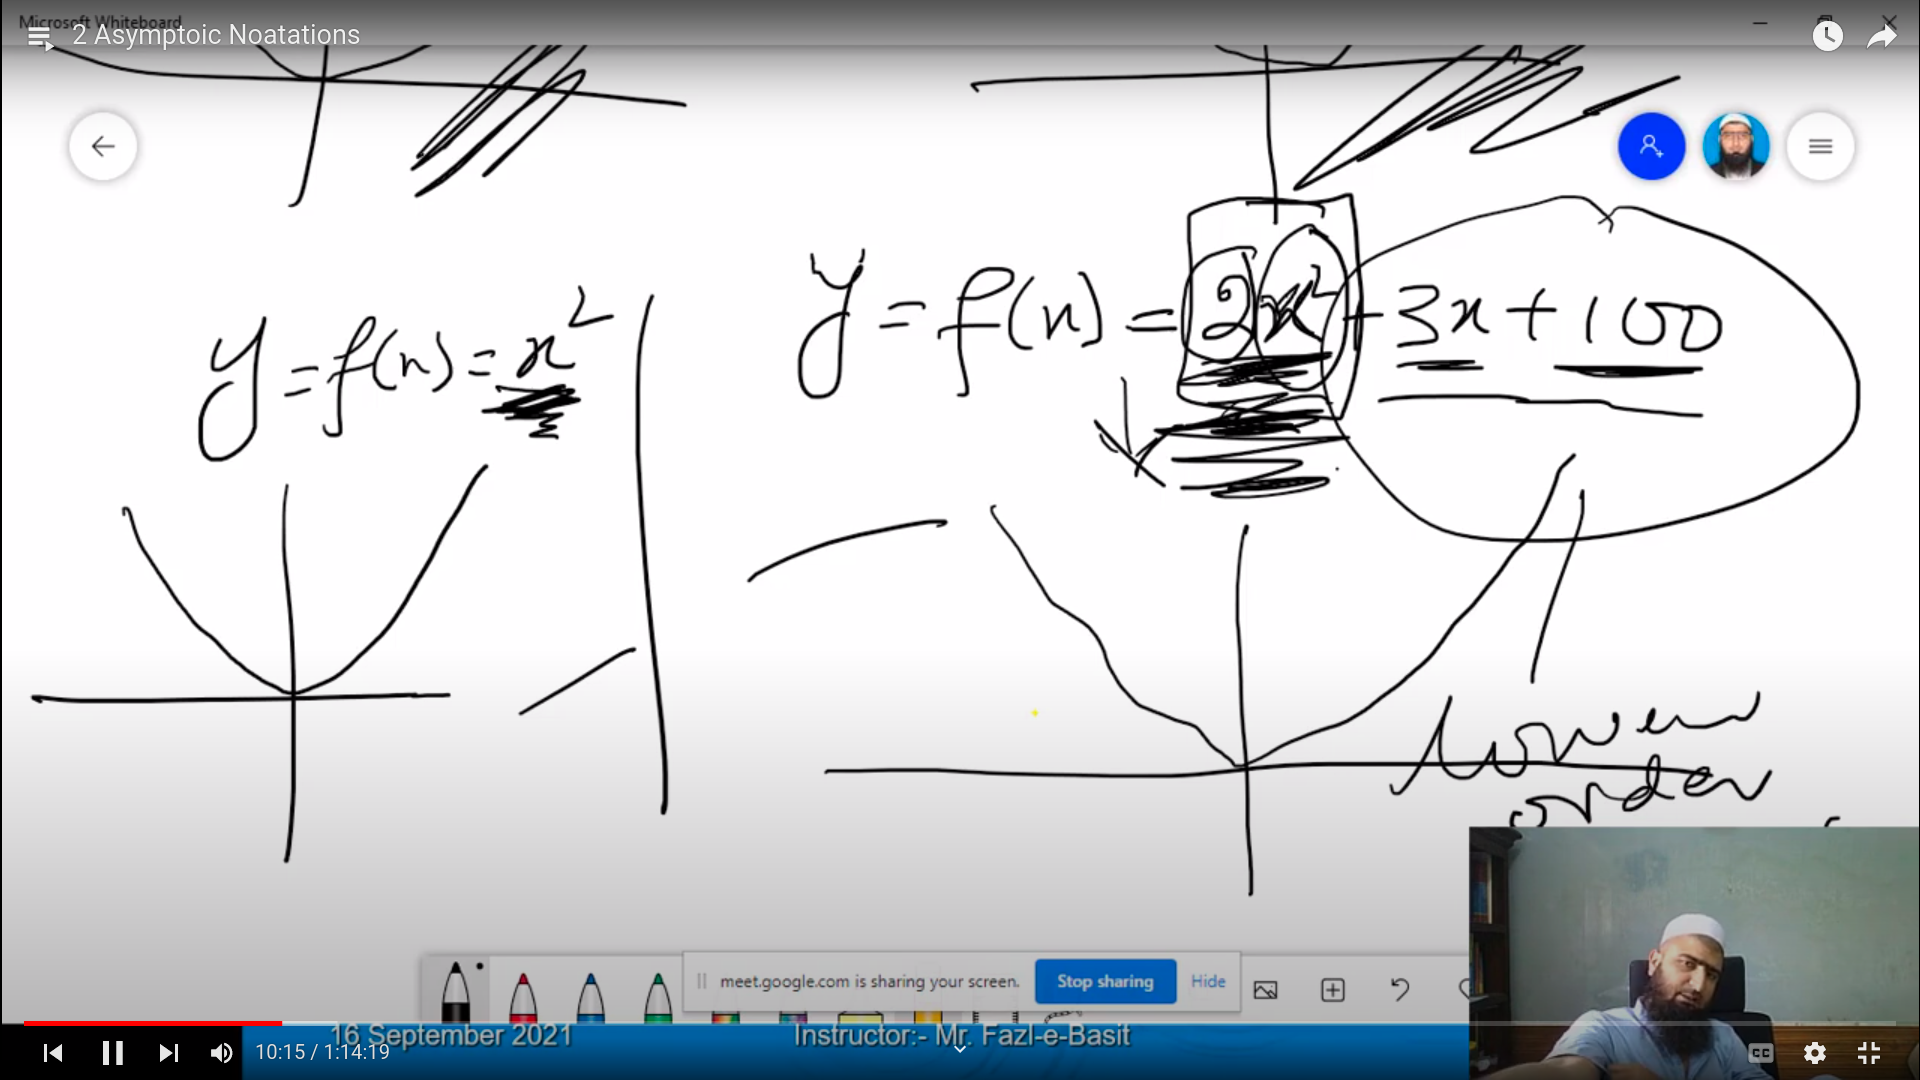 Microsoft Whiteboard
2 Asymptoic Noatations
y = f(n) = x²
y = f(n) = 2x² + 3x + 100
Lower
order
meet.google.com is sharing your screen.
Stop sharing
Hide
16 September 2021
Instructor:- Mr. Fazl-e-Basit
10:15 / 1:14:19
CC